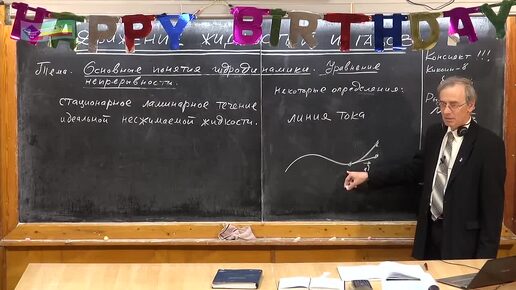 HAPPY BIRTHDAY
ДВИЖЕНИЕ ЖИДКОСТЕЙ И ГАЗОВ
Тема. Основные понятия гидродинамики. Уравнение
непрерывности.
стационарное ламинарное течение
идеальной несжимаемой жидкости.
Некоторые определения:
линия тока
Конспект !!!